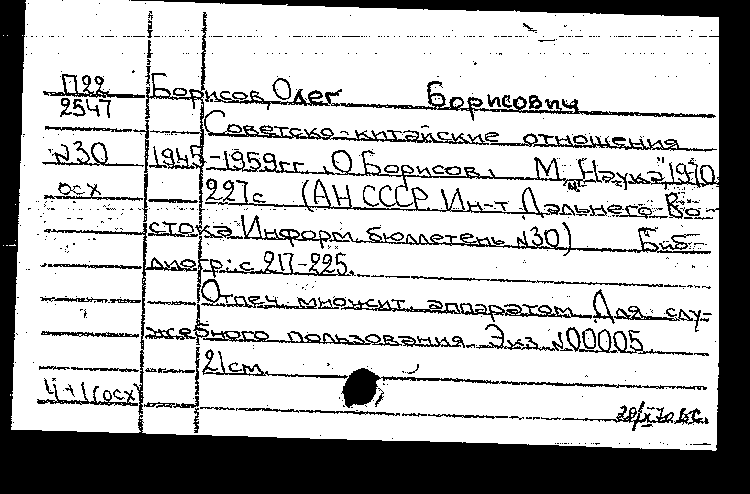 П22 Борисов, Олег Борисович
2547 Советско-китайские отношения
№30 1945-1959гг. О.Борисов. М, "Наука", 1970.
осх 227с. (АН СССР. Ин-т Дальнего Во-
стока. Информ. бюллетень №30) Биб-
лиогр: с 217-225.
Отпеч. множит. аппаратом. Для слу-
жебного пользования. Экз. №00005.
21см.
4+1(осх)